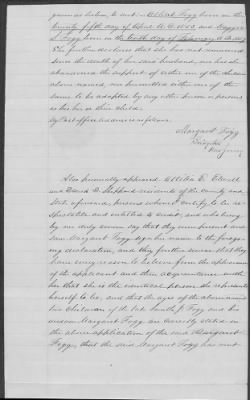 years as below, to wit. Albert Fogg born on the
twenty fifth day of April A.D. and Maggie
J. Fogg born on the tenth day of February A.D.
She further declares that she has not remarried
since the death of her said husband, nor has she
abandoned the support of either one of the children
above named, nor permitted either one of the
same to be adopted by any other person or persons
as his her or their child.
My Post office address is as follows.
Margaret Fogg
Bridgeton
New Jersey
Also personally appeared
and David residents of the county and
State aforesaid, persons whom I certify to be re-
spectable and entitled to credit, and who being
by me duly sworn say that they were present and
saw Margaret Fogg sign her name to the forego
ing declaration, and they further swear that they
have every reason to believe from the appearance
of the applicant and their acquaintance with
her that she is the identical person she represents
herself to be, and that the ages of the above named
two children of the late Smith J. Fogg and his
widow Margaret Fogg are correctly stated in
the above application of the said Margaret
Fogg, that the said Margaret Fogg has not